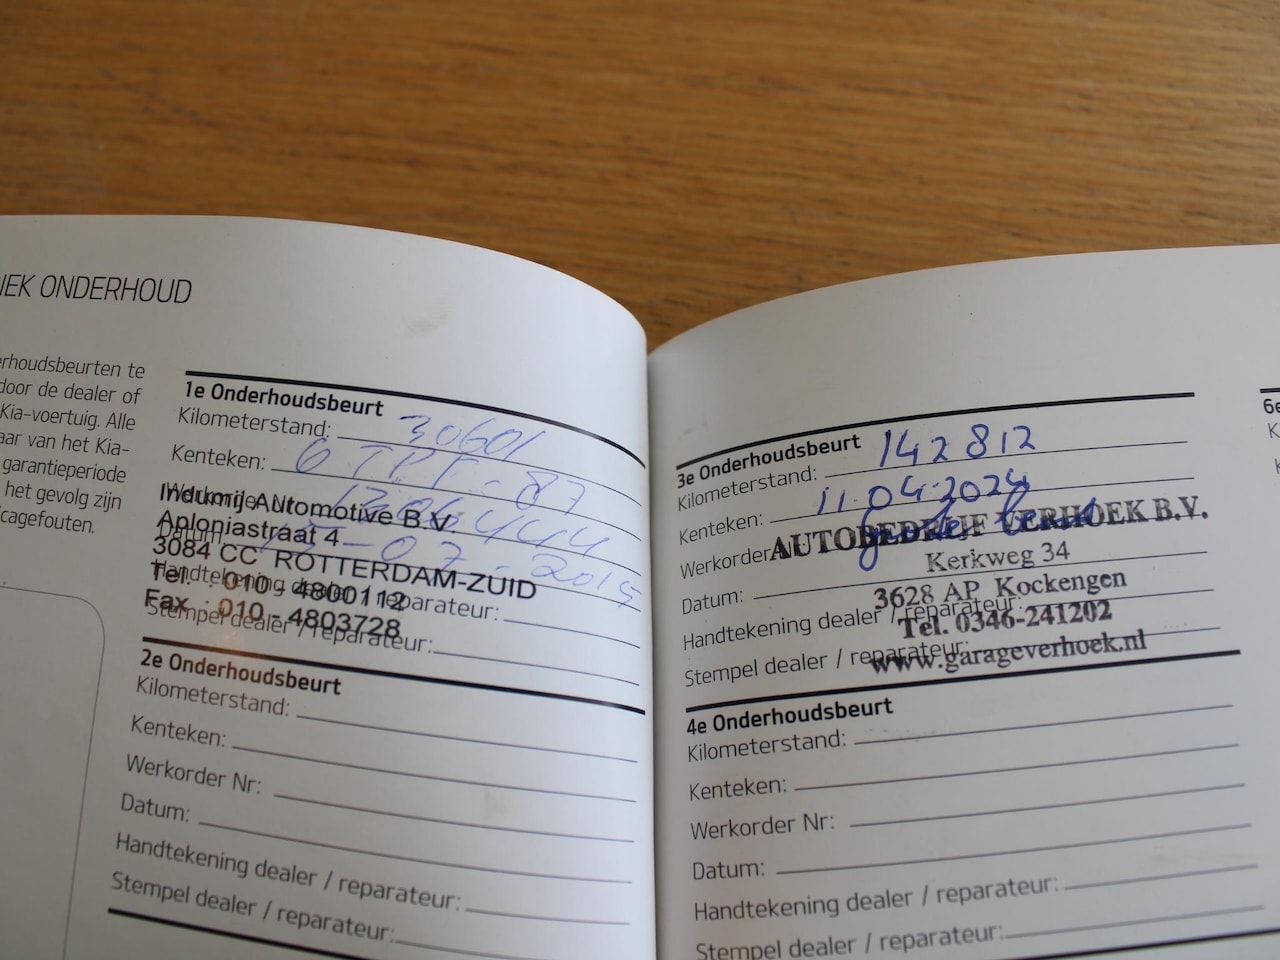 IEK ONDERHOUD
erhoudsbeurten te
door de dealer of
Kia-voertuig. Alle
aar van het Kia-
garantieperiode
het gevolg zijn
cagefouten.
1e Onderhoudsbeurt
Kilometerstand: 30601
Kenteken: 6 TPT-87
Werkorder Nr:
Datum: 15-07-2015
Handtekening dealer / reparateur:
Stempel dealer / reparateur:
Indumij Automotive B.V.
Aploniastraat 4
3084 CC ROTTERDAM-ZUID
Tel. : 010 - 4800112
Fax : 010 - 4803728
2e Onderhoudsbeurt
Kilometerstand:
Kenteken:
Werkorder Nr:
Datum:
Handtekening dealer / reparateur:
Stempel dealer / reparateur:
3e Onderhoudsbeurt
Kilometerstand: 142812
Kenteken: 11.04.2024
Werkorder
Datum:
Handtekening dealer / reparateur:
Stempel dealer / reparateur:
AUTOBEDRIJF VERHOEK B.V.
Kerkweg 34
3628 AP Kockengen
Tel. 0346-241202
www.garageverhoek.nl
4e Onderhoudsbeurt
Kilometerstand:
Kenteken:
Werkorder Nr:
Datum:
Handtekening dealer / reparateur:
Stempel dealer / reparateur:
6e
K